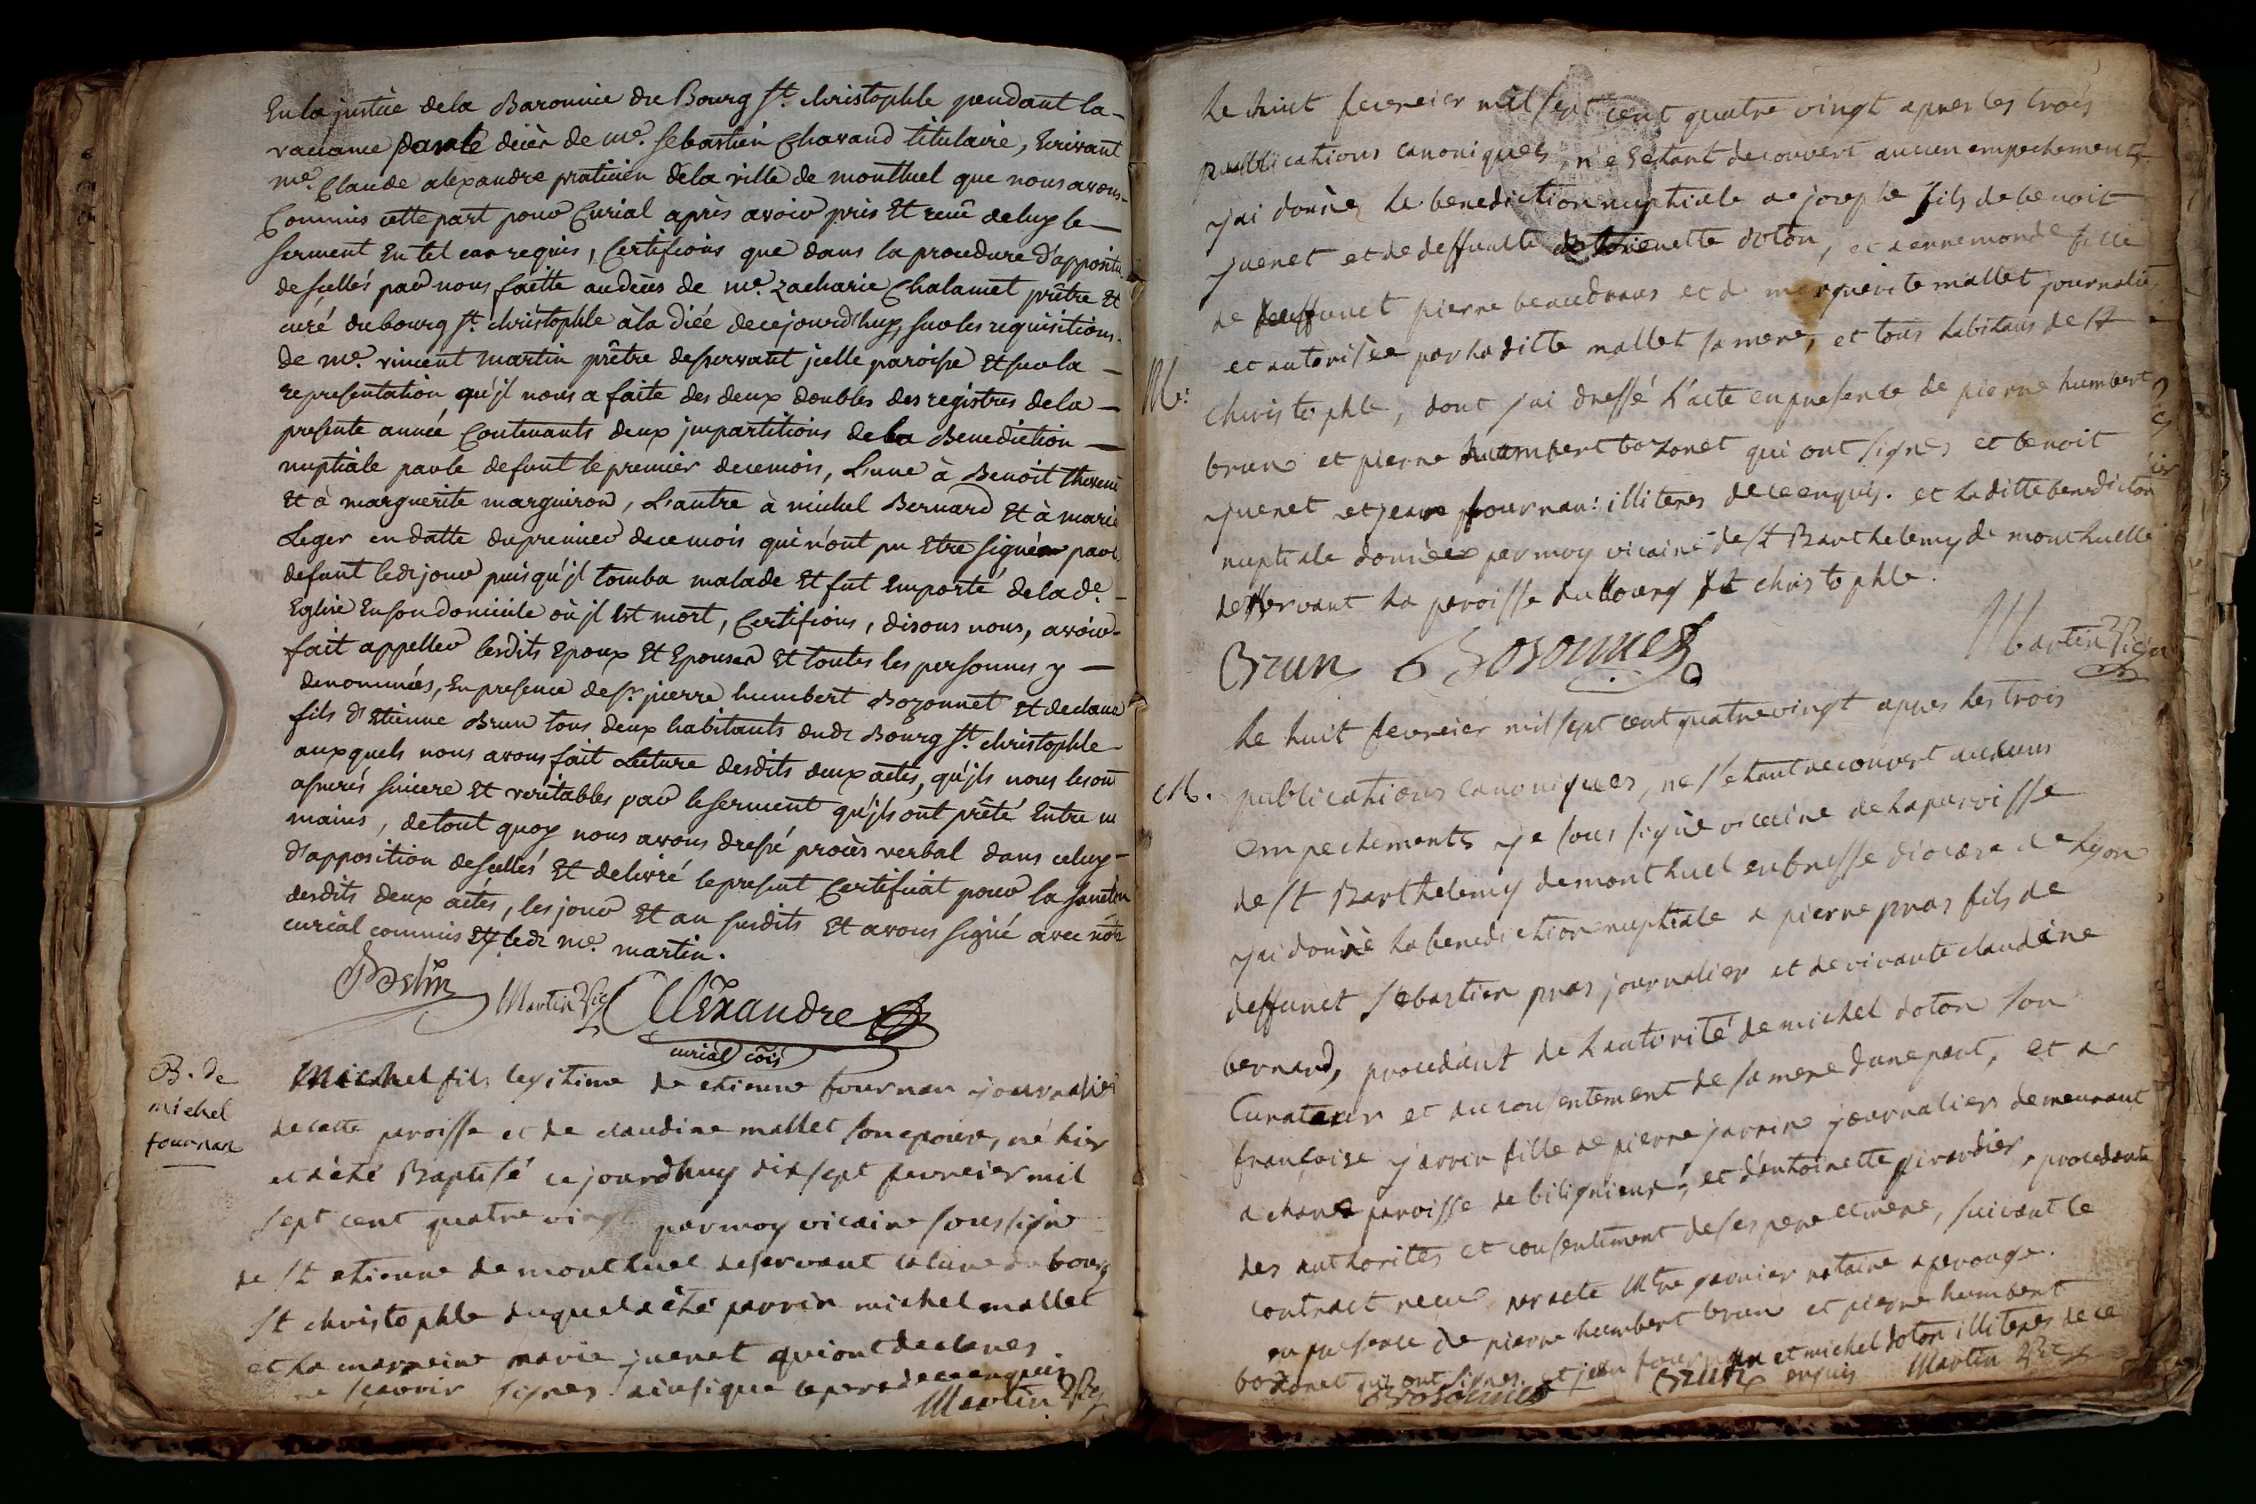 En la justice de la Baronnie du Bourg St. christophle pendant la
vacance par le décès de me. sebastien Chavand titulaire, Ecrivant
me. Claude alexandre praticien de la ville de montluel que nous avons
Commis cette part pour Curial après avoir pris Et reçû de luy le
serment En tel cas requis, Certifions que dans la procedure d'appositn.
de scellés par nous faitte au décès de me. zacharie Chalamet prêtre Et
curé du bourg St. christophle à la diée de cejourd'huy, sur les requisitions
de me. vincent martin prêtre desservant jcelle paroisse Et sur la
representation qu'il nous a faite des deux doubles des registres de la
presente année Contenants deux jmpartitions de la Benediction
nuptiale par le defunt le premier de ce mois, L'une à Benoit
Et à marguerite marguiron, L'autre à michel Bernard Et à marie
Leger en datte du premier de ce mois qui n'ont pu Etre signées par le
defunt ledt jour puisqu'il tomba malade Et fut Emporté de lade.
Eglise En son domicile où jl Est mort, Certifions, disons nous, avoir
fait appeller lesdits Epoux Et Epouses Et toutes les personnes y
denommées, En presence de sr. pierre humbert Bozonnet Et de claude
fils d'Etienne Brun tous deux habitants dudt Bourg St. christophle
auxquels nous avons fait Lecture desdits deux actes, qu'ils nous les ont
assurés sincere Et veritables par le serment qu'ils ont prêté Entre nos
mains, de tout quoy nous avons dressé procès verbal dans celuy
d'apposition de scellés Et delivré le present Certificat pour la sanction
desdits deux actes, les jour Et an susdits Et avons signé avec notre
curial commis Et ledt me. martin.
Martin Vic Alexandre
curial cois
B. de
michel
fournan
Michel fils legitime de etienne fournan journalier
de cette paroisse et de claudine mallet son epouse, né hier
et a été Baptisé ce jourdhuy dix sept fevreier mil
sept cent quatre vingt par moy vicaire soussigné
de St etienne de monthuel deservant la cure du bourg
St christophle duquel a été parrin michel mallet
et la marreine marie juenet qui ont declarés
ne sçavoir signer ainsique le pere de ce enquis
Martin Vic
Le huit fevreier mil sept cent quatre vingt apres les trois
publications canoniques, ne s'etant decouvert aucun empechement
j'ai donné la benediction nuptiale a joseph fils de benoit
juenet et de deffuncte doton, et a ennemonde fille
de deffunct pierre beaudrans et de marguerite mallet journalie
et autorisée par laditte mallet sa mere, et tous habitans de St
M.
christophle, dont j'ai dressé l'acte en presence de pierre humbert
brun et pierre humbert bozonet qui ont signés et benoit
juenet et jean fournan: illiteres de ce enquis. et la ditte benediction
nuptiale donnée par moy vicaire de St Barthelemy de monthuelle
deservant la paroisse du bourg St christophle.
Brun Bosonnet Martin Vic
Le huit fevreier mil sept cent quatre vingt apres les trois
M. publications canoniques, ne s'etant decouvert aucuns
empechements je sous signé vicaire de la paroisse
de St Barthelemy de monthuel en bresse diocese de Lyon
j'ai donné la benediction nuptiale a pierre pras fils de
deffunct sebastien pras journalier et de vivante claudine
bernard, procedant de l'autorité de michel doton son
Curateur et du consentement de sa mere d'une part, et a
françoise jarrin fille de pierre jarrin journalier demeurant
a paroisse de bilignieux, et d'antoinette girardier, procedante
des authorités et consentiment de ses pere et mere, suivant le
contract reçu par acte Mtre garnier notaire a perouge.
en presence de pierre humbert brun et pierre humbert
bozonet qui ont signés. et jean fournan et michel doton illiteres de ce
enquis
Bosonnet Brun Martin Vic